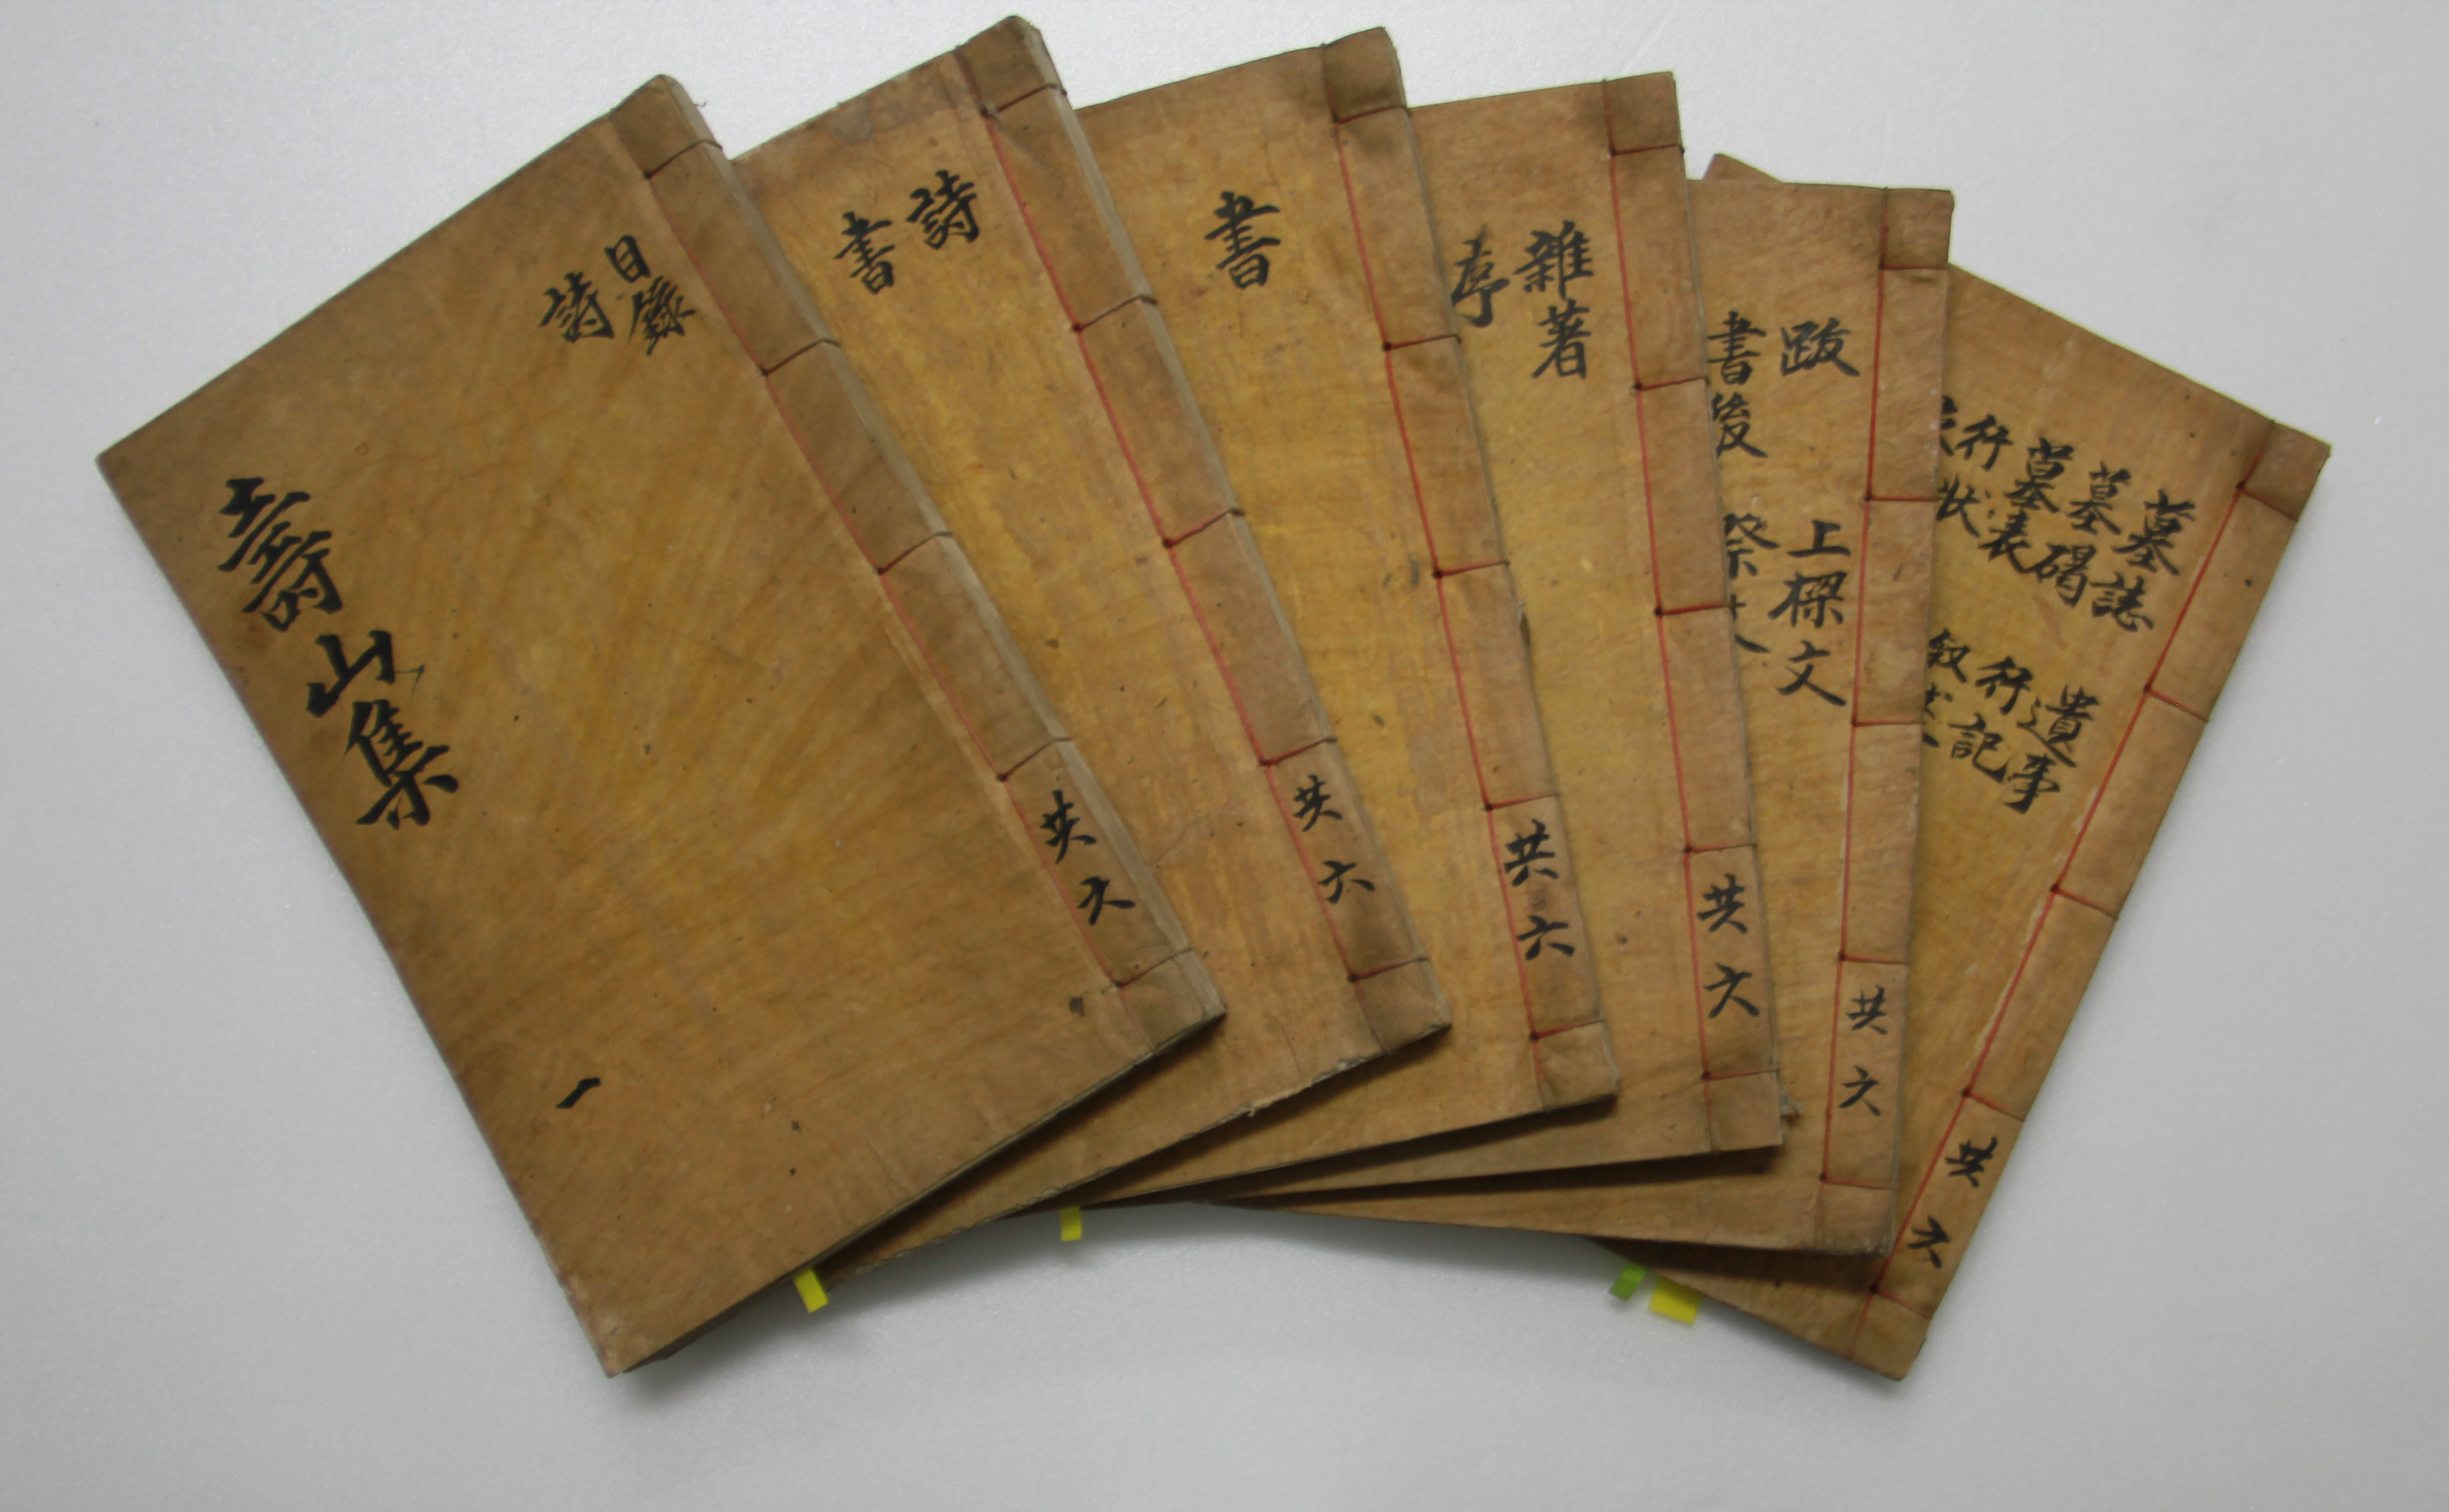 壽山集
目錄
詩
一
共六
詩
書
共六
書
共六
雜著
序
共六
跋
上樑文
書後
祭文
共六
墓誌
遺事
墓碣
行記
墓表
叙述
行狀
共六